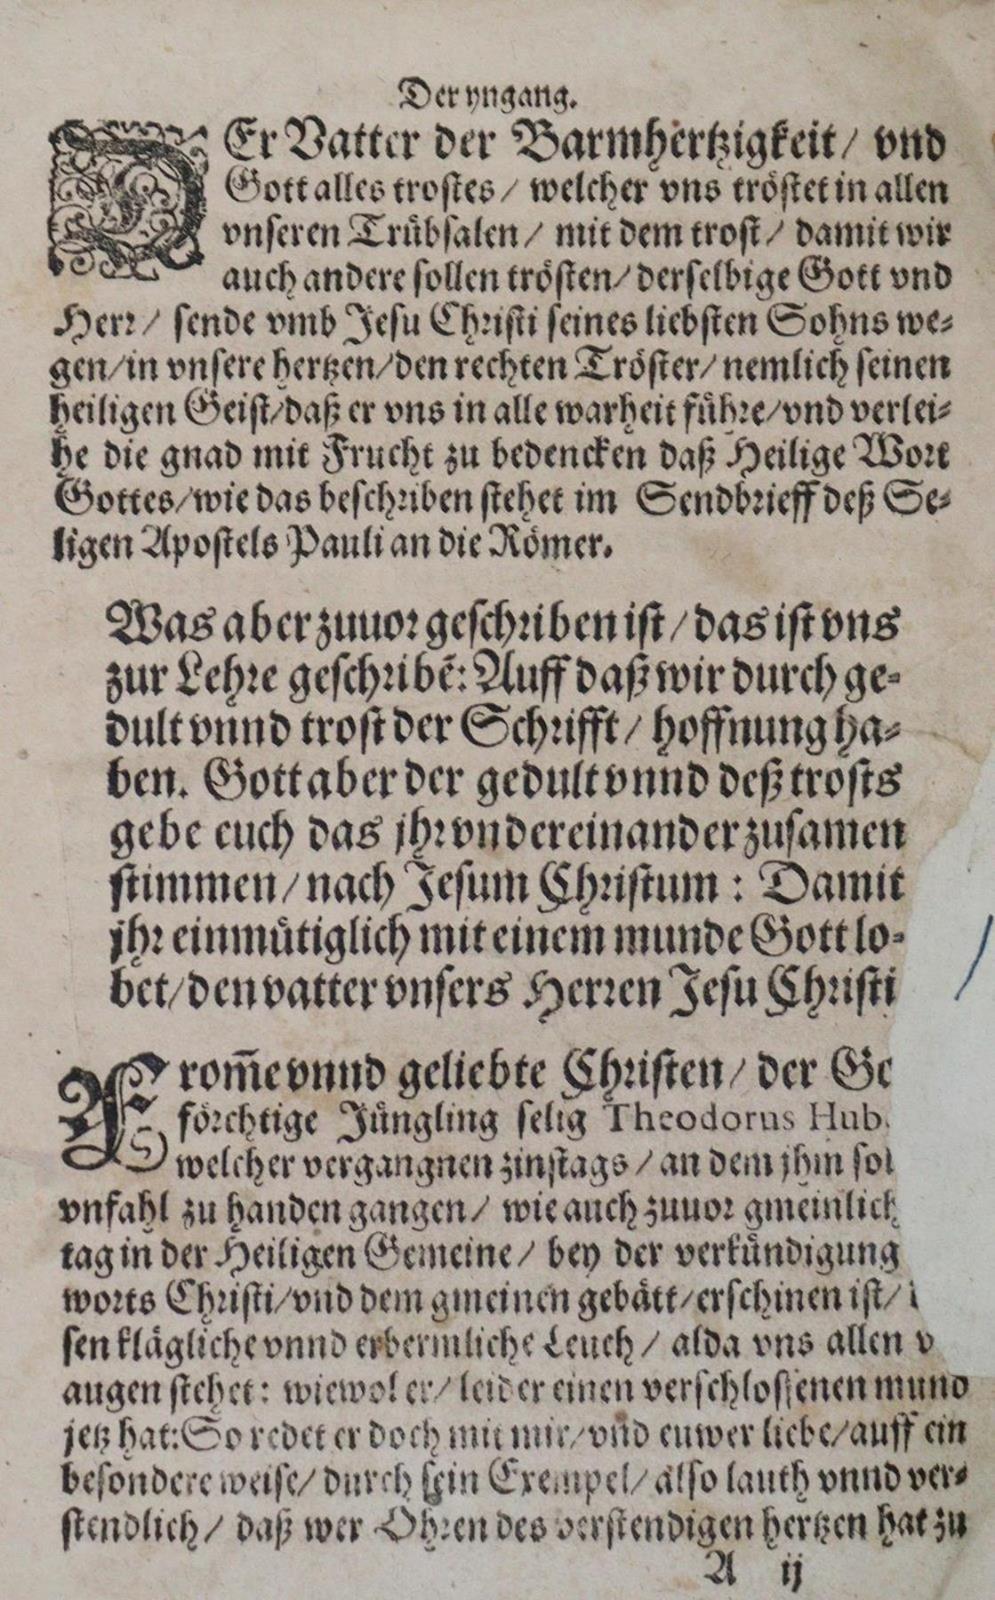 Der yngang.
DEr Vatter der Barmhertzigkeit/ vnd
Gott alles trostes/ welcher vns tröstet in allen
vnseren Trübsalen/ mit dem trost/ damit wir
auch andere sollen trösten/ derselbige Gott vnd
Herr/ sende vmb Jesu Christi seines liebsten Sohns we-
gen/in vnsere hertzen/den rechten Tröster/nemlich seinen
heiligen Geist/daß er vns in alle warheit führe/vnd verlei-
he die gnad mit Frucht zu bedencken daß Heilige Wort
Gottes/wie das beschriben stehet im Sendbrieff deß Se-
ligen Apostels Pauli an die Römer.
Was aber zuuor geschriben ist/das ist vns
zur Lehre geschribẽ: Auff daß wir durch ge-
dult vnnd trost der Schrifft/ hoffnung ha-
ben. Gott aber der gedult vnnd deß trosts
gebe euch das jhr vndereinander zusamen
stimmen/nach Jesum Christum: Damit
jhr einmütiglich mit einem munde Gott lo-
bet/den vatter vnsers Herren Jesu Christi
From̃e vnnd geliebte Christen/ der
förchtige Jüngling selig Theodorus Hub.
welcher vergangnen zinstags/an dem jhm
vnfahl zu handen gangen/ wie auch zuuor gmeinlich
tag in der Heiligen Gemeine/ bey der verkündigung
worts Christi/vnd dem gmeinen gebätt/erschinen ist/
sen klägliche vnnd erbermliche Leuch/ alda vns allen
augen stehet: wiewol er/leider einen verschlossenen mund
jetz hat: So redet er doch mit mir/vnd euwer liebe/auff ein
besondere weise/durch sein Exempel/also lauth vnnd ver-
stendlich/ daß wer Ohren des verstendigen hertzen hat zu
A ij